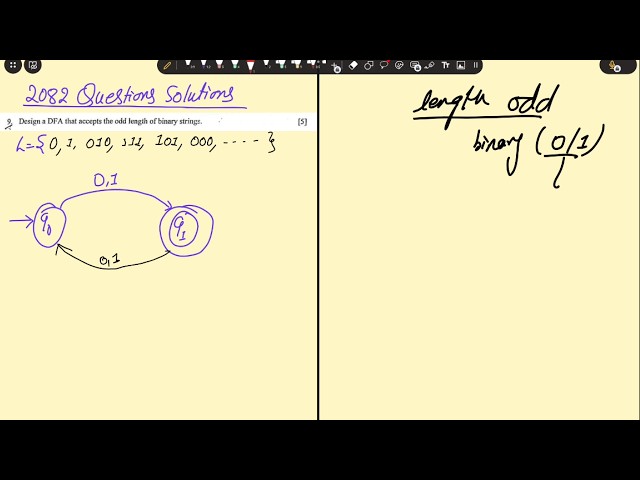 2082 Questions Solutions
9. Design a DFA that accepts the odd length of binary strings. [5]
L={0, 1, 010, 111, 101, 000, ----}
0,1
q0
q1
0,1
length odd
binary (0/1)